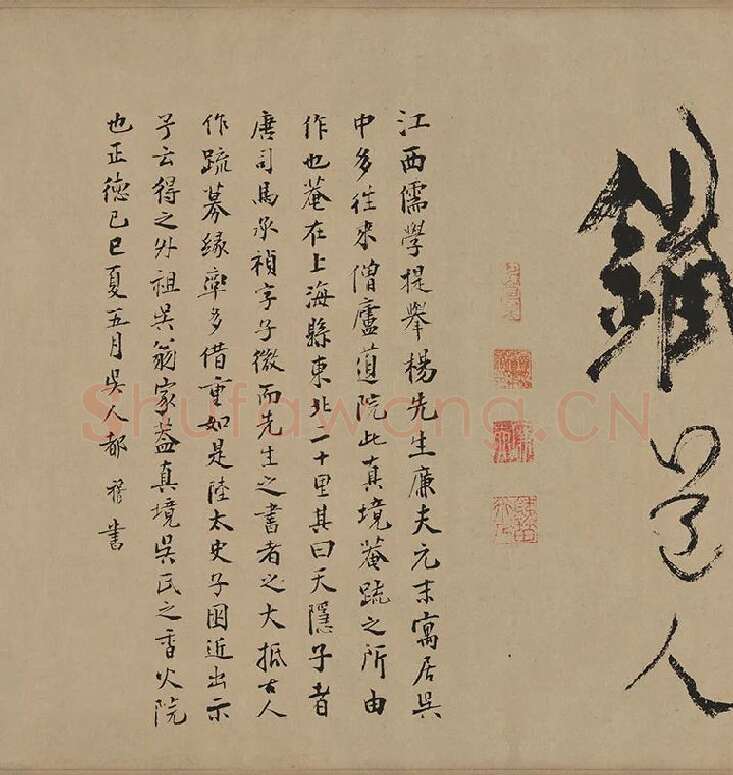 鐵道人
江西儒學提舉楊先生廉夫元末寓居吳
中多往來僧廬道院此真境菴疏之所由
作也菴在上海縣東北二十里其曰天隱子者
唐司馬承禎字子微而先生之書者之大抵古人
作疏募緣率多借重如是陸太史子困近出示
予云得之外祖吳翁家葢真境吳氏之香火院
也正德己巳夏五月吳人都穆書
Shufawang.CN